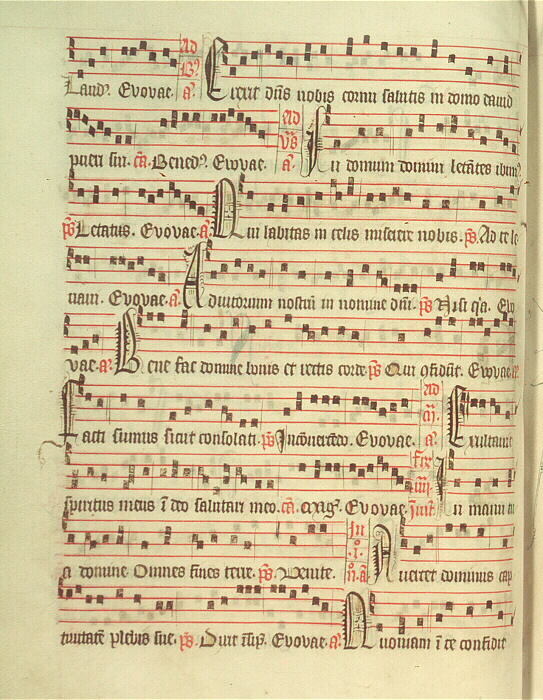 Laud(us). Evovae. a(n). Ad B(e). Erexit dñs nobis cornu salutis in domo david
pueri sui. cā. Bened(us). Evovae. Ad vs a(n). In domum domini letātes ibim(us)
ps Letatus. Evovae. a(n). Qui habitas in celis miserere nobis. ps. Ad te le
vavi. Evovae. a(n). Adiutorium nostrū in nomine dñi. ps Nisi q(ui)a. Evo
vae. a(n). Bene fac domine bonis et rectis corde. ps Qui 9fidūt. Evovae. a(n)
Facti sumus sicut consolati. ps In cōvertēdo. Evovae. Ad a(n). Exultavit
spiritus meus ī deo salutari meo. cā. Evovae. In manu tu
a domine Omnes fines terre. ps. Venite. Avertet dominus cap
tivitatē plebis sue. ps. Dixit īsip(iens). Evovae. a(n). Quoniam ī te confidit